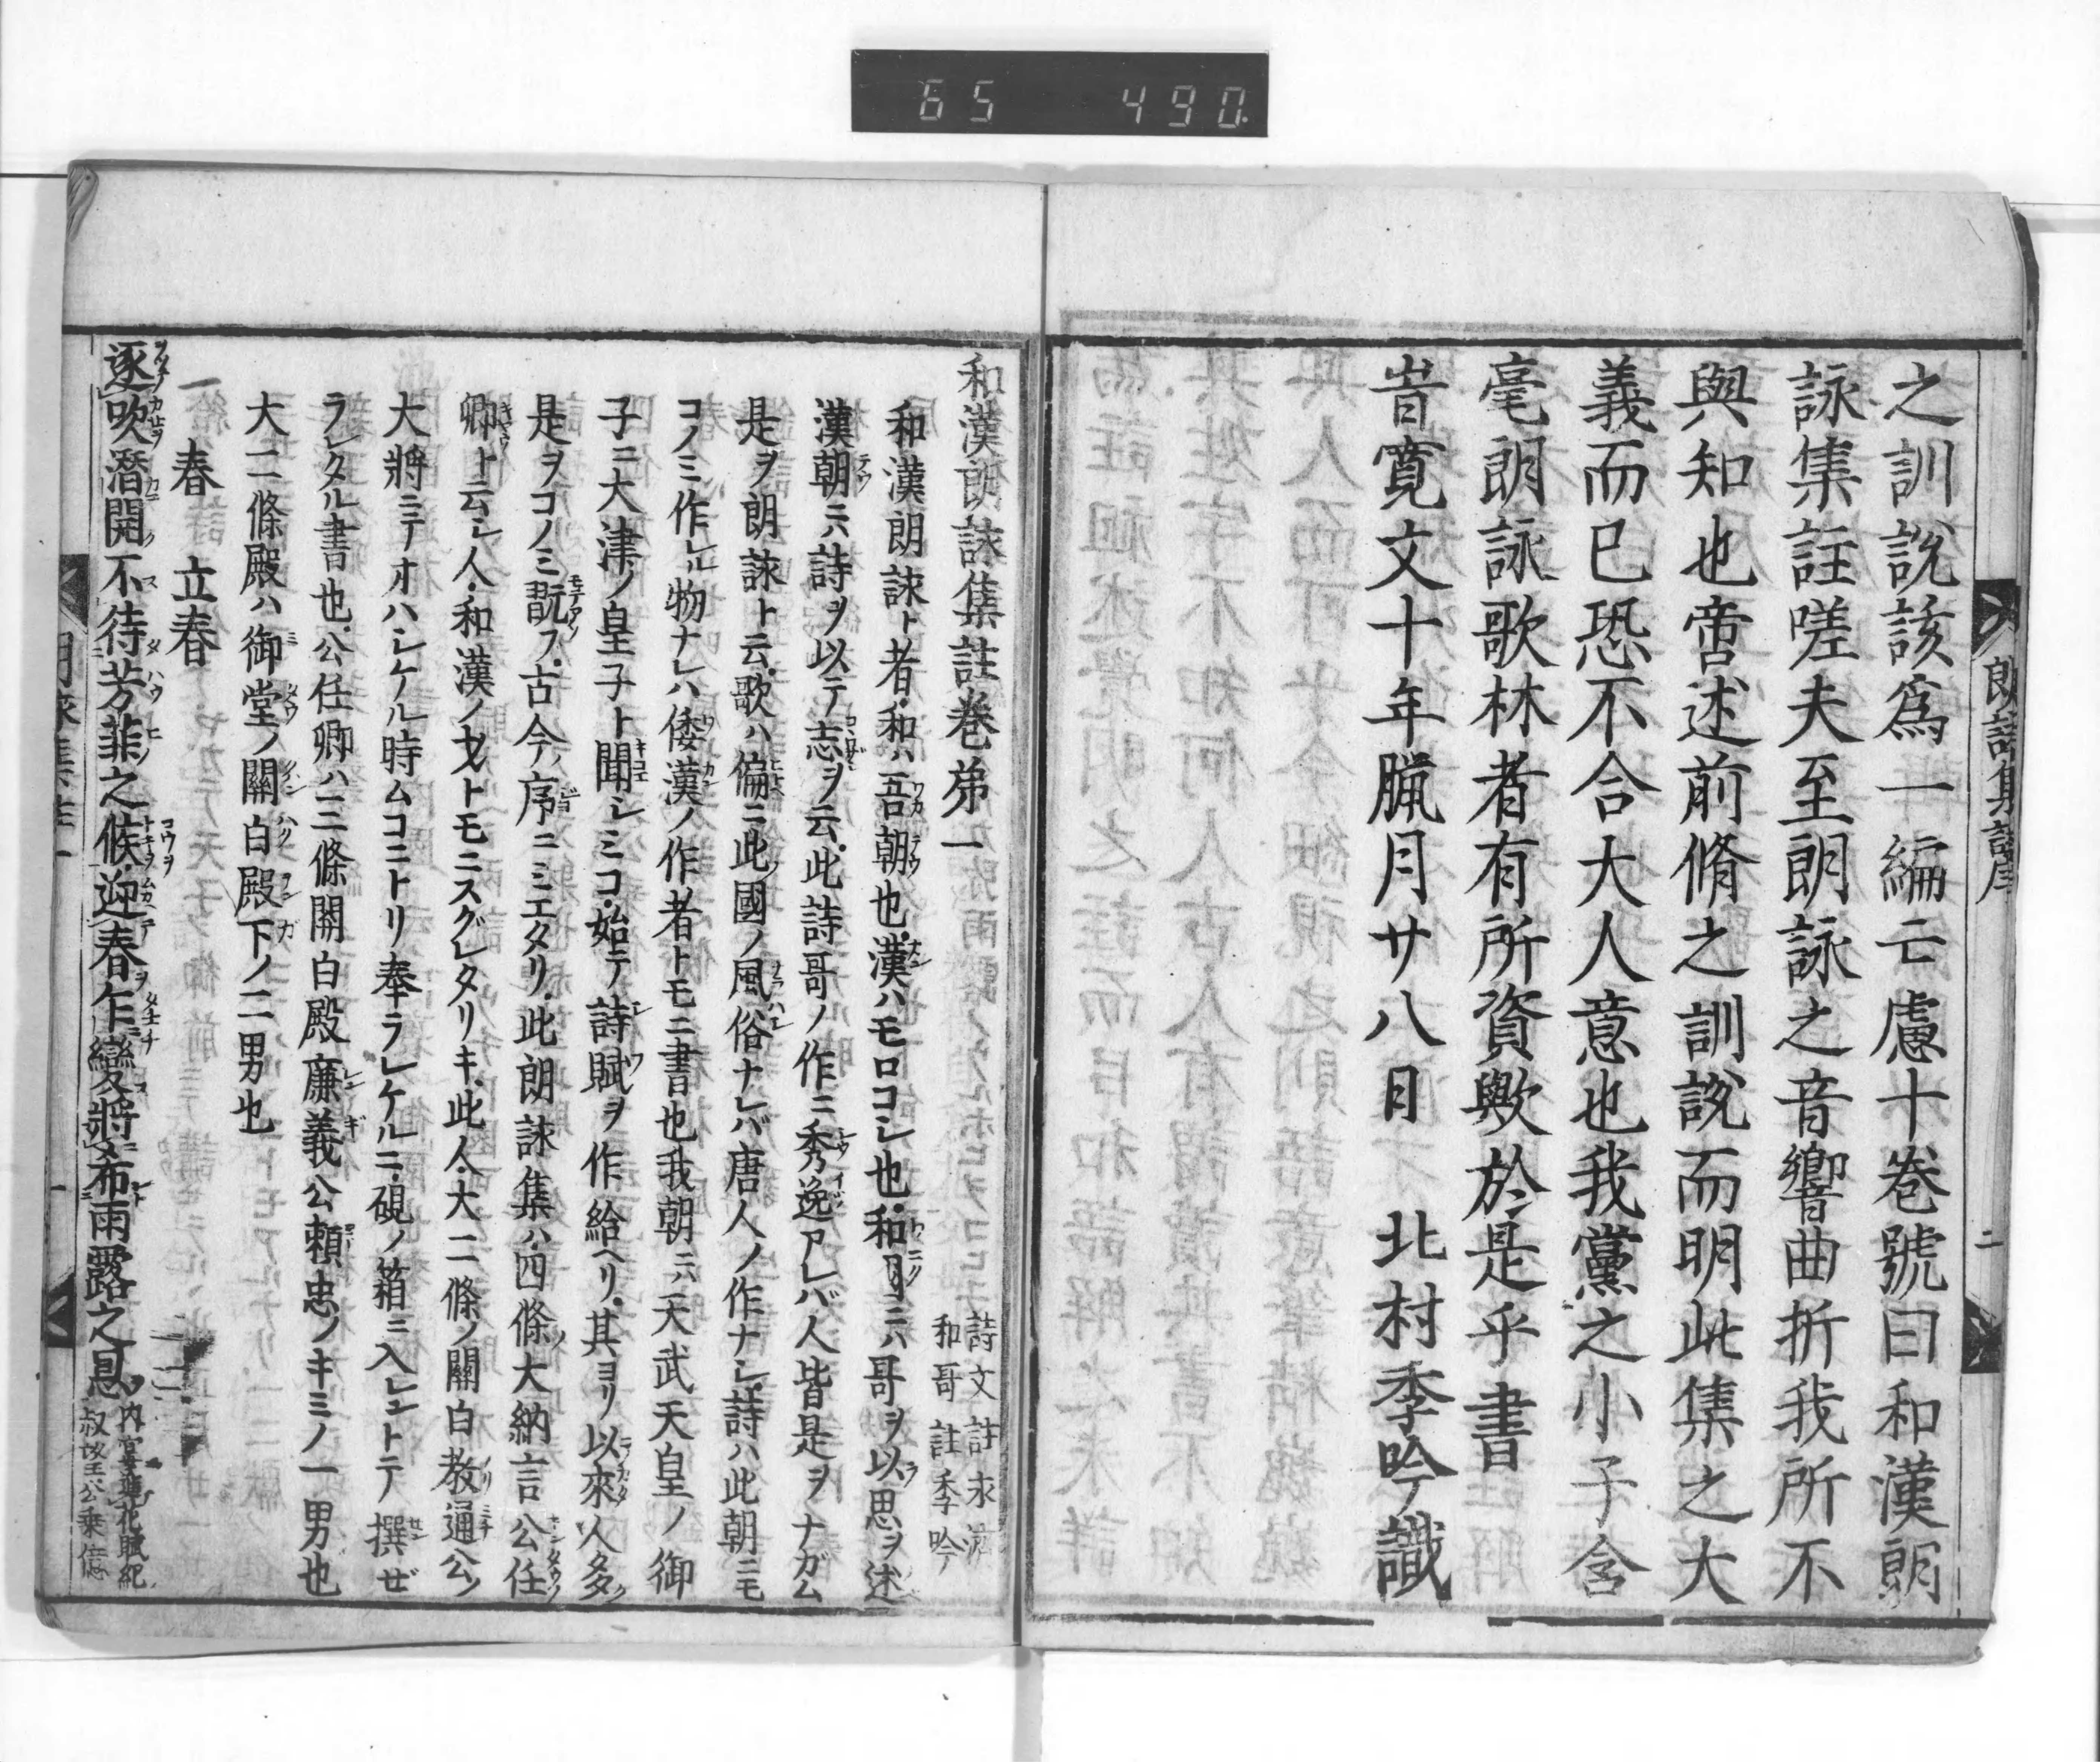 65 490
朗詠集註序
二
之訓說該爲一編亡慮十卷號曰和漢朗
詠集註嗟夫至朗詠之音響曲折我所不
與知也啻述前脩之訓說而明此集之大
義而已恐不合大人意也我黨之小子含
毫朗詠歌林者有所資歟於是乎書
旹寛文十年臘月廿八日 北村季吟識
和漢朗詠集註卷第一
詩文註永濟
和哥註季吟
和漢朗詠ト者和ハ吾朝也漢ハモロコシ也和國ニハ哥ヲ以思ヲ述
漢朝ニハ詩ヲ以テ志ヲノ云此詩哥ノ作ニ秀逸アレバ人皆是ヲナガム
是ヲ朗詠ト云歌ハ偏ニ此國ノ風俗ナレバ唐人ノ作ナシ詩ハ此朝ニモ
コノミ作レル物ナレハ倭漢ノ作者トモニ書也我朝ニハ天武天皇ノ御
子ニ大津ノ皇子ト聞シミコ始テ詩賦ヲ作給ヘリ其ヨリ以來人多
是ヲコノミ翫フ古今ノ序ニミエタリ此朗詠集ハ四條大納言公任
卿ト云シ人和漢ノ才トモニスグレタリキ此人大二條ノ關白教通公ノ
大將ニテオハシケル時ムコニトリ奉ラレケルニ硯ノ箱ニ入レントテ撰ゼ
ラレタル書也公任卿ハ三條關白殿廉義公頼忠ノキミノ一男也
大二條殿ハ御堂ノ關白殿下ノ二男也
春 立春
逐吹潛開不待芳菲之候迎春乍變將希雨露之恩
內宴進花賦紀
朗詠集註一
一